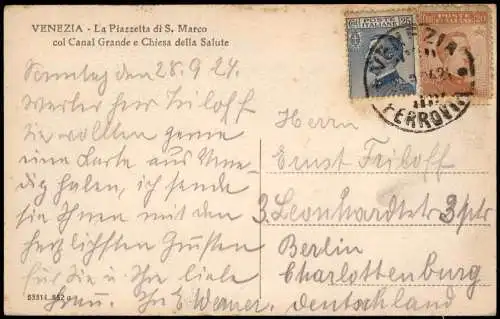 VENEZIA - La Piazzetta di S. Marco
col Canal Grande e Chiesa della Salute
Sonntag den 28.9 24.
Werter Herr Friloff
Sie wollten gerne
eine Karte aus Vene-
dig haben, ich sende
sie Ihnen mit den
herzlichsten Grüßen
für Sie u Ihre liebe
Frau. Ihr E Werner.
53314 552
POSTE ITALIANE 25
POSTE ITALIANE 20
VENEZIA
FERROVIA
Herrn
Ernst Friloff
3. Leonhardtstr 3 ptr
Berlin
Charlottenburg
Deutschland